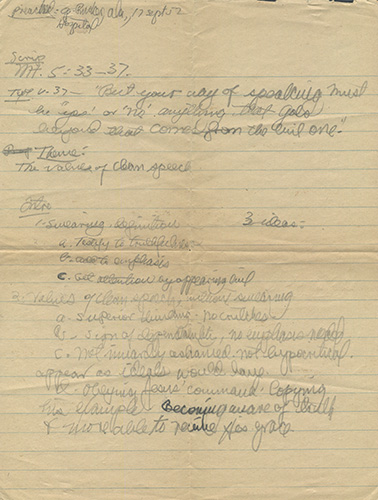 17 Sept 52
Hospital
Mt. 5:33-37.
v. 37 - "But your way of speaking must
be 'yes' or 'no' anything that goes
beyond that comes from the Evil one."
Theme:
The values of clean speech
3 ideas:
1. Swearing, definition
a. Testify to truthfulness
b. to emphasis
c. Get attention by appearing evil
2. Values of clean speech, without swearing
a. Superior thinking - no crutches
b. Sign of no emphasis needed
c. Not inwardly ashamed, not hypocritical.
appear as ideals would have.
d. Obeying Jesus' command - Copying
his example Becoming aware of
& more able to receive His grace.